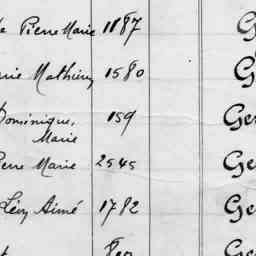 Pierre Marie 1187 G
Mathieu 1580 G
Dominique, 159 Ger
Marie
Pierre Marie 2545 Ge
Lévy Aimé 1782 Ge
Ge